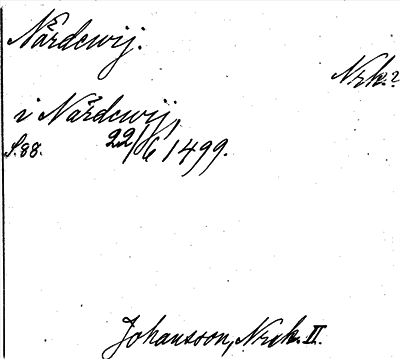 Nårdewij.
Nrk.?
i Nårdewij,
S. 88. 22/6 1499.
Johansson, Nrk. II.